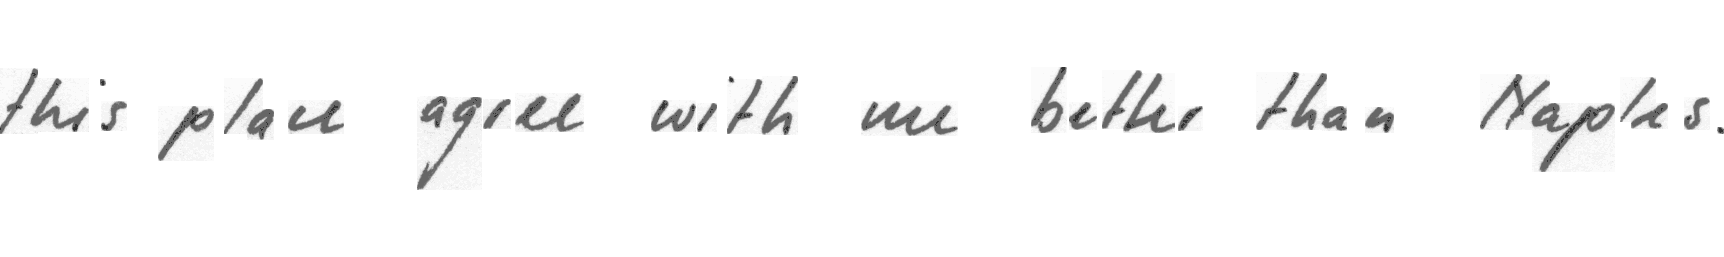 this place agree with me better than Naples.